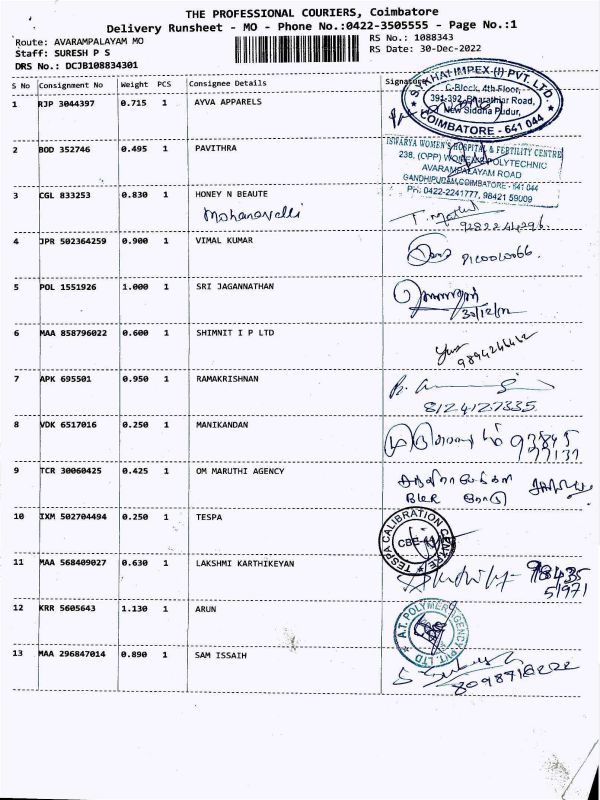 THE PROFESSIONAL COURIERS, Coimbatore
Delivery Runsheet - MO - Phone No.:0422-3505555 - Page No.:1
Route: AVARAMPALAYAM MO
RS No.: 1088343
Staff: SURESH P S
RS Date: 30-Dec-2022
DRS No.: DCJB108834301
S No Consignment No Weight PCS Consignee Details Signature
1 RJP 3044397 0.715 1 AYVA APPARELS
SYKHAI IMPEX (I) PVT. LTD.
C-Block, 4th Floor,
391-392, Bharathiar Road,
New Siddha Pudur,
COIMBATORE - 641 044
2 BOD 352746 0.495 1 PAVITHRA
ISWARYA WOMEN'S HOSPITAL & FERTILITY CENTRE
238, (OPP) WOMEN'S POLYTECHNIC
AVARAMPALAYAM ROAD
GANDHIPURAM, COIMBATORE - 641 044
PH: 0422-2241777, 98421 59009
3 CGL 833253 0.830 1 HONEY N BEAUTE
Mohanavalli
4 JPR 502364259 0.900 1 VIMAL KUMAR
5 POL 1551926 1.000 1 SRI JAGANNATHAN
30/12/22
6 MAA 858796022 0.600 1 SHIMNIT I P LTD
7 APK 695501 0.950 1 RAMAKRISHNAN
8124127335
8 VDK 6517016 0.250 1 MANIKANDAN
9 TCR 30060425 0.425 1 OM MARUTHI AGENCY
10 IXM 502704494 0.250 1 TESPA
TESPA CALIBRATION CENTRE
11 MAA 568409027 0.630 1 LAKSHMI KARTHIKEYAN
98435
51971
12 KRR 5605643 1.130 1 ARUN
A.T. POLYMER AGENCY PVT. LTD
13 MAA 296847014 0.890 1 SAM ISSAIH